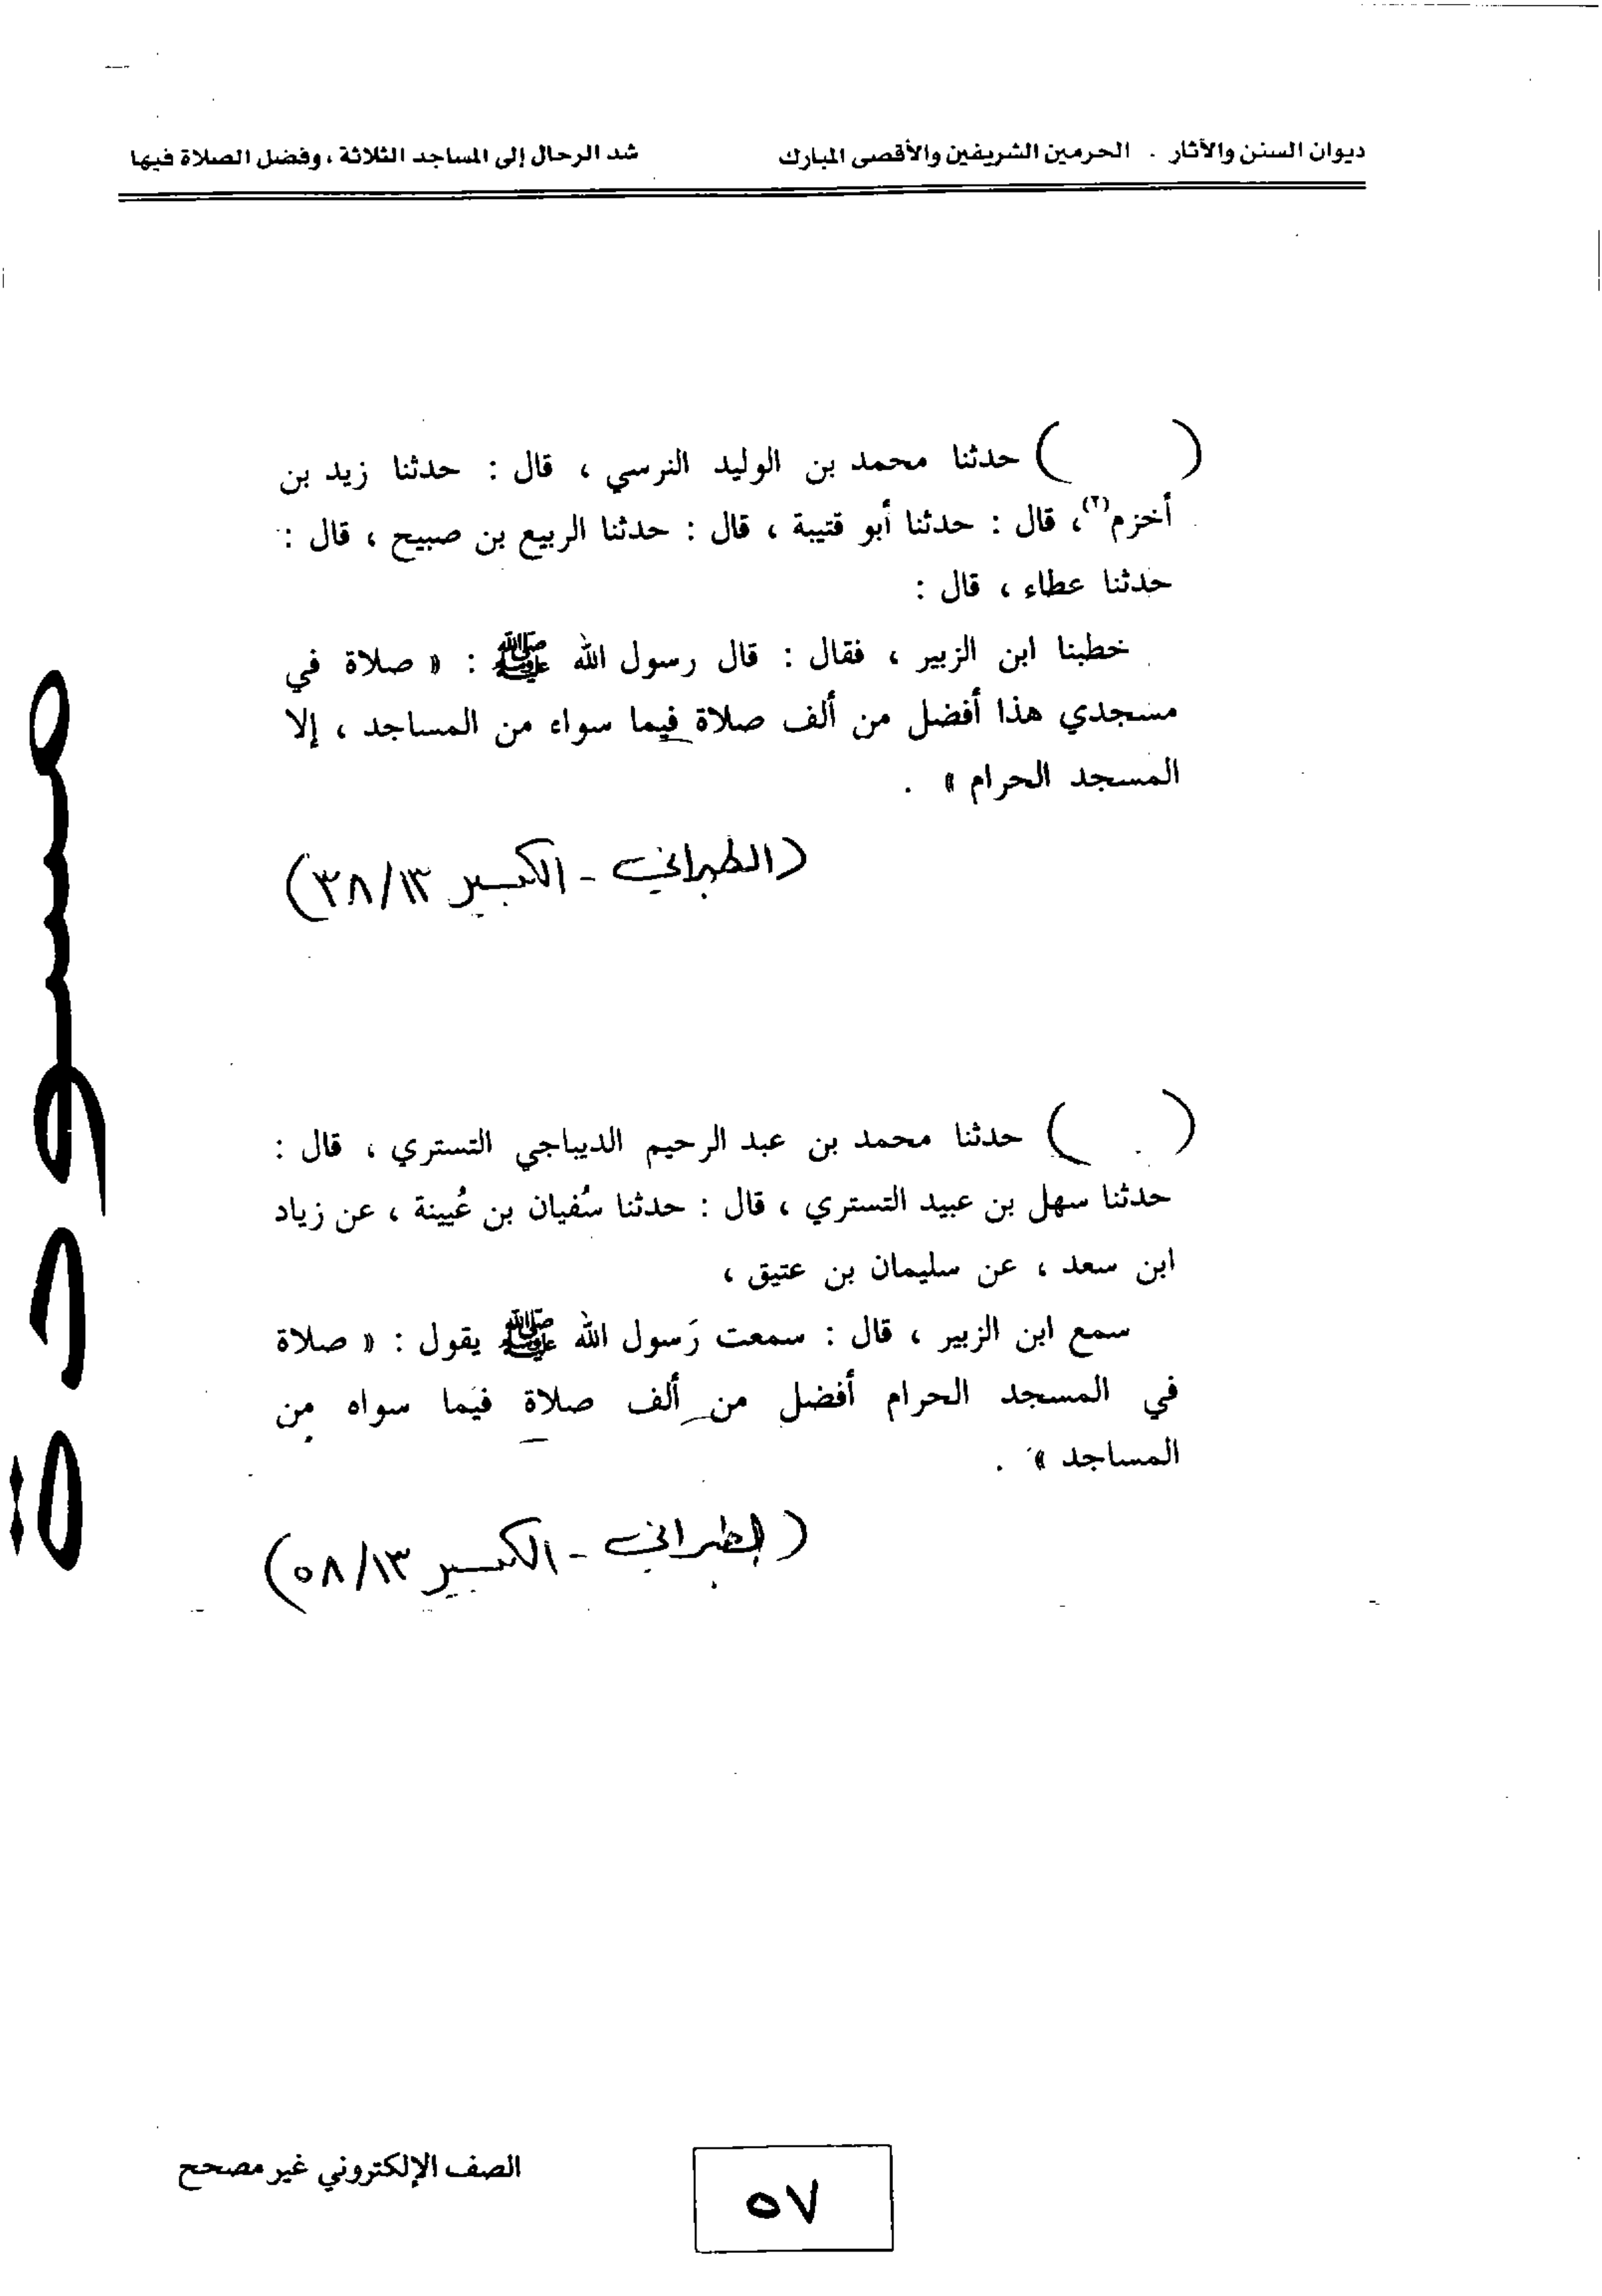 ديوان السنن والآثار . الحرمين الشريفين والأقصى المبارك شد الرحال إلى المساجد الثلاثة ، وفضل الصلاة فيها
( ) حدثنا محمد بن الوليد النرسي ، قال : حدثنا زيد بن
أخزم(٢)، قال : حدثنا أبو قتيبة ، قال : حدثنا الربيع بن صبيح ، قال :
حدثنا عطاء ، قال :
خطبنا ابن الزبير ، فقال : قال رسول الله ﷺ : « صلاة في
مسجدي هذا أفضل من ألف صلاة فيما سواء من المساجد ، إلا
المسجد الحرام » .
(الطبراني - الكبير ١٣/ ٣٨)
( ) حدثنا محمد بن عبد الرحيم الديباجي التستري ، قال :
حدثنا سهل بن عبيد التستري ، قال : حدثنا سُفيان بن عُيينة ، عن زياد
ابن سعد ، عن سليمان بن عتيق ،
سمع ابن الزبير ، قال : سمعت رَسول الله ﷺ يقول : « صلاة
في المسجد الحرام أفضل من ألف صلاة فيما سواه من
المساجد » .
(الطبراني - الكبير ١٣/ ٥٨)
مسودة
الصف الإلكتروني غير مصحح
٥٧